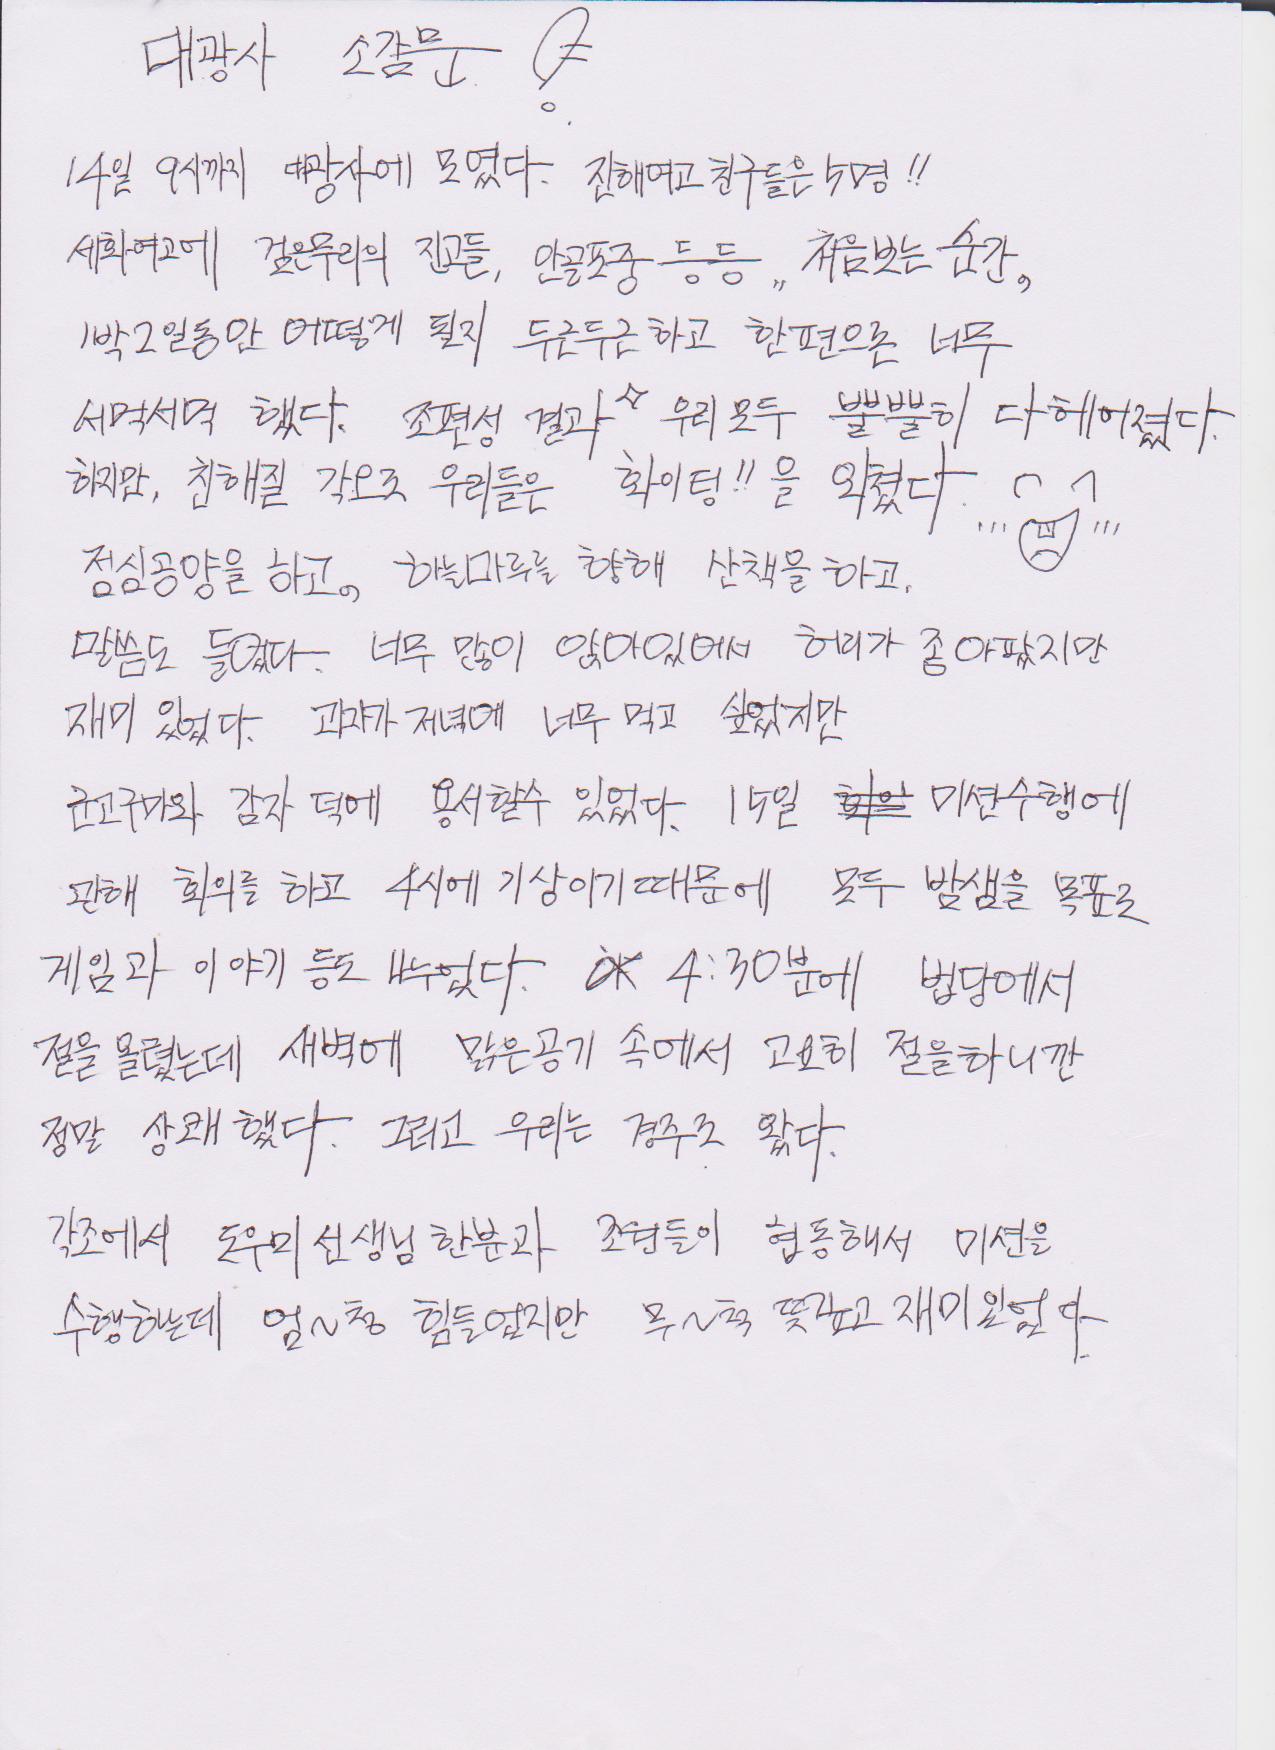 대광사 소감문
14일 9시까지 대광사에 모였다. 진해여고 친구들은 5명!!
세화여고에 검은무리의 진고들, 안골포중 등등,, 처음보는 순간,
1박2일동안 어떻게 될지 두근두근하고 한편으론 너무
서먹서먹 했다. 조편성 결과☆ 우리모두 뿔뿔히 다헤어졌다.
하지만, 친해질 각오로 우리들은 화이팅!!을 외쳤다.
점심공양을 하고, 하늘마루를 향해 산책을하고,
말씀도 들었다. 너무 많이 앉아있어서 허리가 좀아팠지만
재미 있었다. 과자가 저녁에 너무 먹고 싶었지만
군고구마와 감자 덕에 용서할수 있었다. 15일 미션수행에
관해 회의를 하고 4시에 기상이기때문에 모두 밤샘을 목표로
게임과 이야기 등도 나누었다. 4:30분에 법당에서
절을 올렸는데 새벽에 맑은공기 속에서 고요히 절을하니깐
정말 상쾌했다. 그리고 우리는 경주로 왔다.
각조에서 도우미선생님 한분과 조원들이 협동해서 미션을
수행하는데 엄~청 힘들었지만 무~척 뜻깊고 재미있었다.